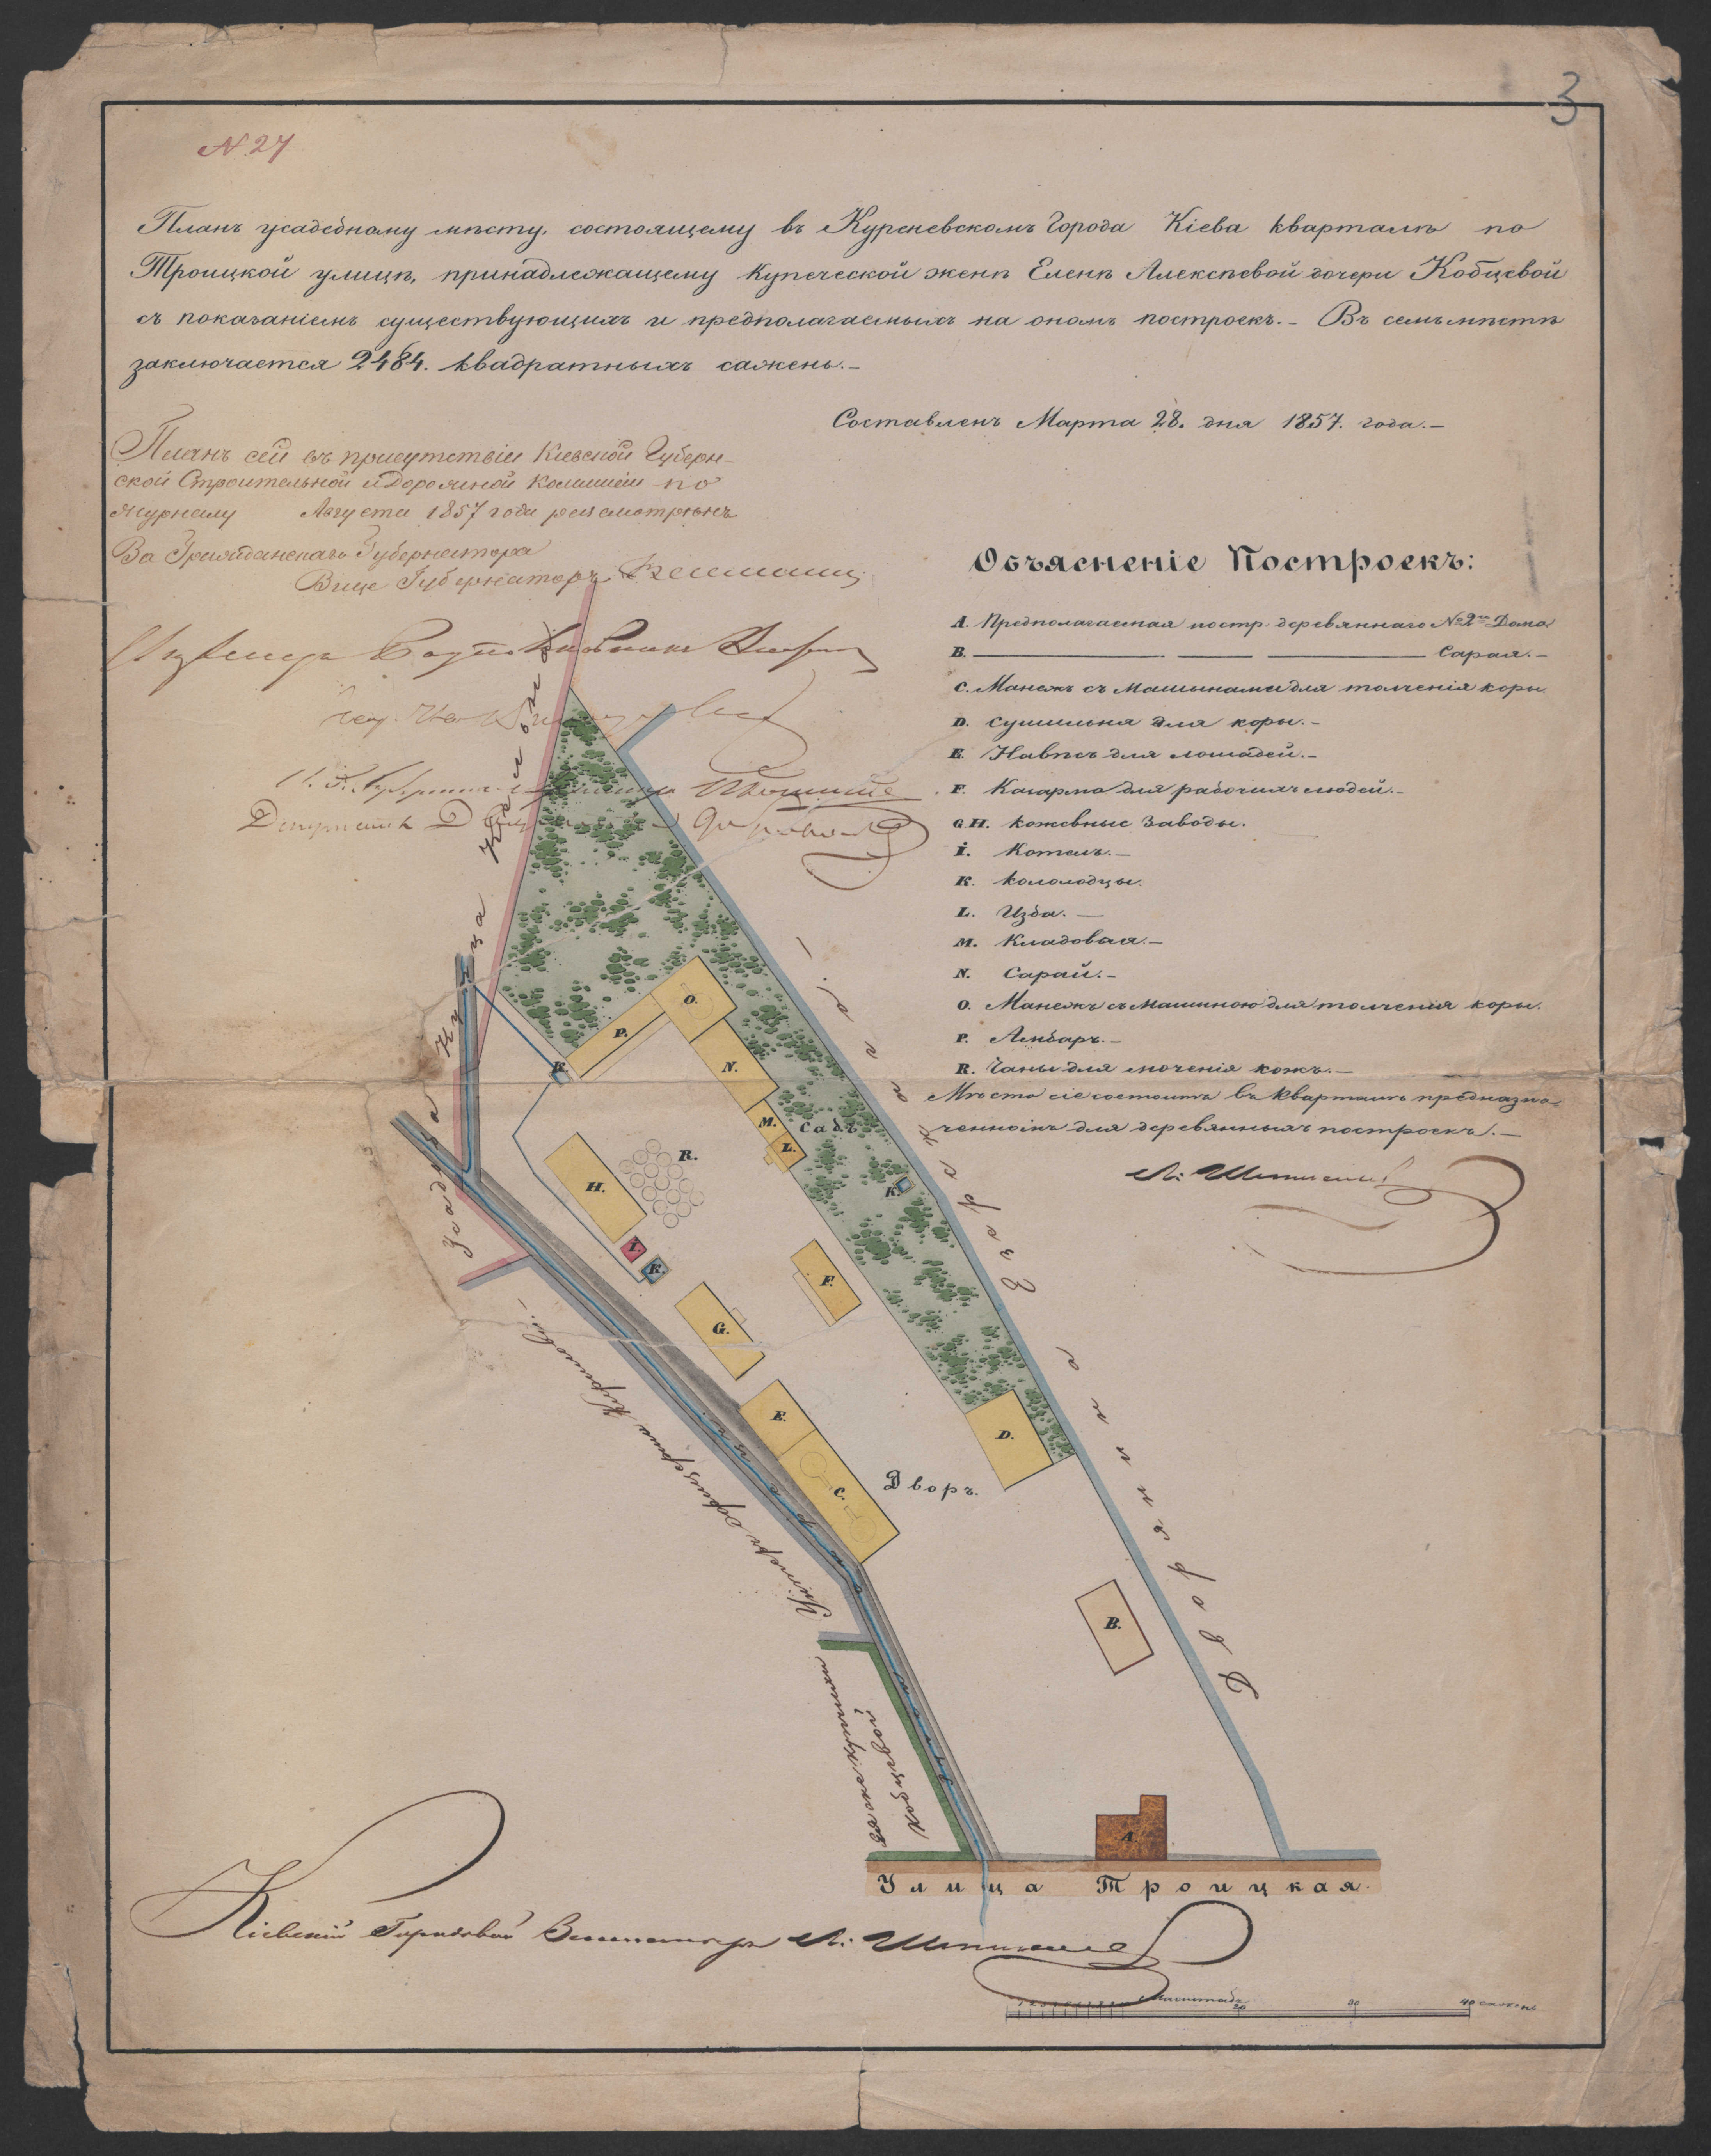 3
N 27
Планъ усадебному мѣсту, состоящему въ Куреневскомъ Города Кіева кварталѣ по
Троицкой улицѣ, принадлежащему Купеческой женѣ Еленѣ Алексѣевой дочери Кобцевой
съ показаніемъ существующихъ и предполагаемыхъ на ономъ построекъ.- Въ семъ мѣстѣ
заключается 2484. квадратныхъ сажень.-
Составленъ Марта 28. дня 1857. года.-
Планъ сей въ присутствіи Кіевской Губерн-
ской Строительной и Дорожной Коммисіи по
журналу Августа 1857 года разсмотрѣнъ
За Гражданскаго Губернатора
Вице Губернаторъ
Объясненіе Построекъ:
A. Предполагаемая постр. деревяннаго № 2го Дома
B. Сарая.-
C. Манежъ съ Машинами для толченія коры.
D. Сушильня для коры.-
E. Навѣсъ для лошадей.-
F. Казарма для рабочихъ людей.-
G.H. Кожевные Заводы.
I. Котелъ.-
K. Кололодцы.
L. Изба.-
M. Кладовая.-
N. Сарай.-
O. Манежъ съ Машиною для толченія коры.
P. Анбаръ.-
R. Чаны для моченія кожъ.-
Мѣсто сіе состоитъ въ кварталѣ предназна-
ченномъ для деревянныхъ построекъ.-
Депутатъ
Усадьба Купца
O.
P.
N.
K.
M.
Садъ
L.
R.
H.
K.
I.
K.
F.
G.
E.
D.
C.
Дворъ.
B.
A.
Дворянина
Унтеръ Офицерши
Ея же купчихи
Кобцевой
Улица Троицкая.
Кіевскій Городовой
Масштабъ
20 30 40 сажень